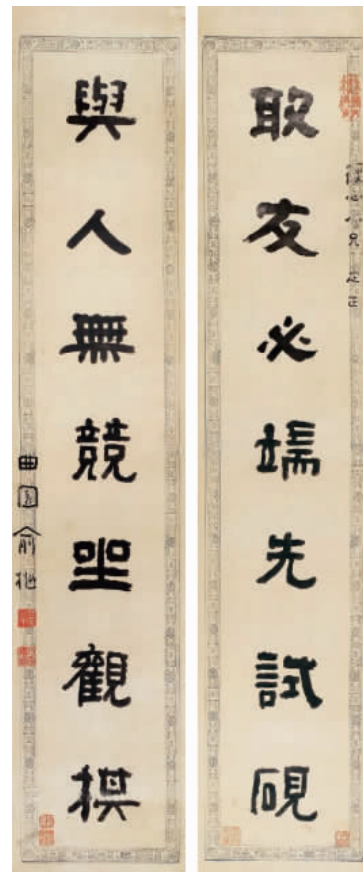 取友必端先試硯
心 兄 正
與人無競坐觀棋
曲園俞樾